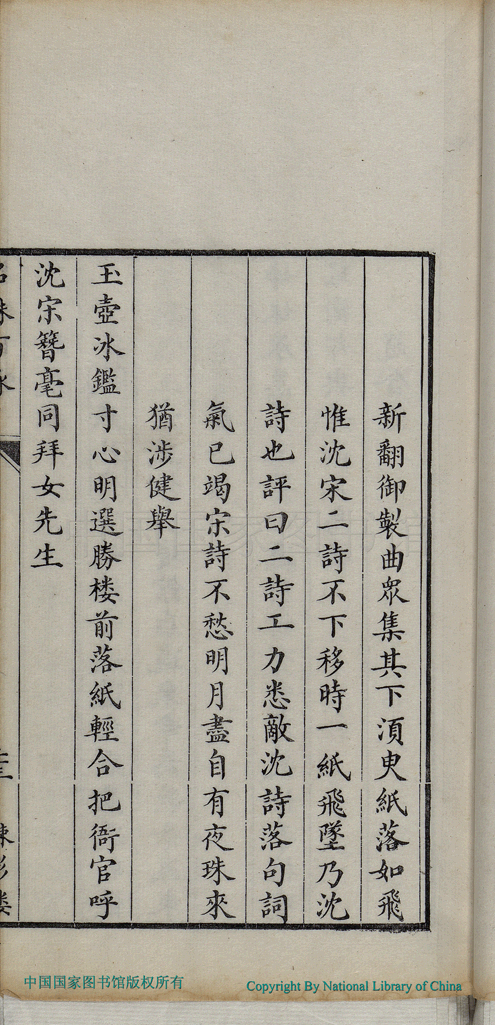 新翻御製曲眾集其下湏臾紙落如飛
惟沈宋二詩不下移時一紙飛墜乃沈
詩也評曰二詩工力悉敵沈詩落句詞
氣已竭宋詩不愁明月盡自有夜珠來
猶涉健舉
玉壺冰鑑寸心明選勝楼前落紙輕合把衙官呼
沈宋簪毫同拜女先生
中国国家图书馆版权所有
Copyright By National Library of China